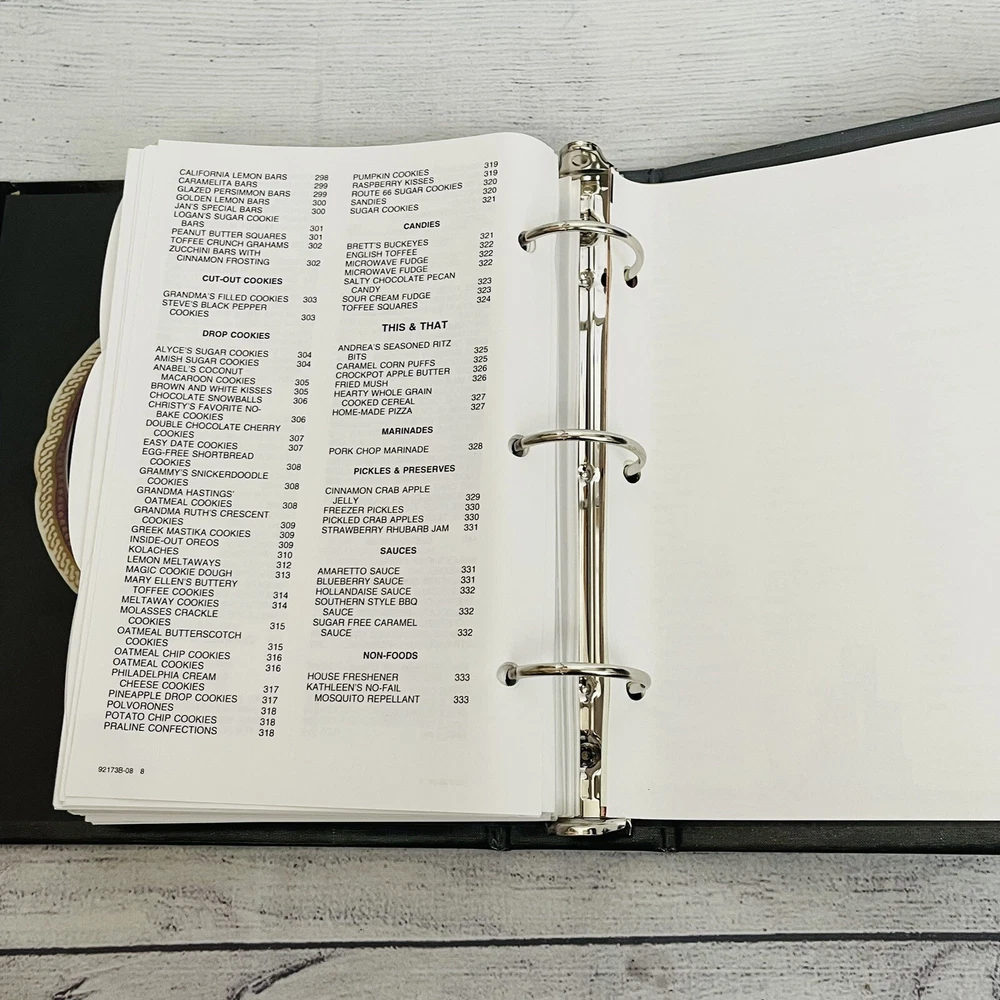 CALIFORNIA LEMON BARS 298
CARAMELITA BARS 299
GLAZED PERSIMMON BARS 299
GOLDEN LEMON BARS 300
JAN'S SPECIAL BARS 300
LOGAN'S SUGAR COOKIE
BARS 301
PEANUT BUTTER SQUARES 301
TOFFEE CRUNCH GRAHAMS 302
ZUCCHINI BARS WITH
CINNAMON FROSTING 302
CUT-OUT COOKIES
GRANDMA'S FILLED COOKIES 303
STEVE'S BLACK PEPPER
COOKIES 303
DROP COOKIES
ALYCE'S SUGAR COOKIES 304
AMISH SUGAR COOKIES 304
ANABEL'S COCONUT
MACAROON COOKIES 305
BROWN AND WHITE KISSES 305
CHOCOLATE SNOWBALLS 306
CHRISTY'S FAVORITE NO-
BAKE COOKIES 306
DOUBLE CHOCOLATE CHERRY
COOKIES 307
EASY DATE COOKIES 307
EGG-FREE SHORTBREAD
COOKIES 308
GRAMMY'S SNICKERDOODLE
COOKIES 308
GRANDMA HASTINGS'
OATMEAL COOKIES 308
GRANDMA RUTH'S CRESCENT
COOKIES 309
GREEK MASTIKA COOKIES 309
INSIDE-OUT OREOS 309
KOLACHES 310
LEMON MELTAWAYS 312
MAGIC COOKIE DOUGH 313
MARY ELLEN'S BUTTERY
TOFFEE COOKIES 314
MELTAWAY COOKIES 314
MOLASSES CRACKLE
COOKIES 315
OATMEAL BUTTERSCOTCH
COOKIES 315
OATMEAL CHIP COOKIES 316
OATMEAL COOKIES 316
PHILADELPHIA CREAM
CHEESE COOKIES 317
PINEAPPLE DROP COOKIES 317
POLVORONES 318
POTATO CHIP COOKIES 318
PRALINE CONFECTIONS 318
PUMPKIN COOKIES 319
RASPBERRY KISSES 319
ROUTE 66 SUGAR COOKIES 320
SANDIES 320
SUGAR COOKIES 321
CANDIES
BRETT'S BUCKEYES 321
ENGLISH TOFFEE 322
MICROWAVE FUDGE 322
MICROWAVE FUDGE 322
SALTY CHOCOLATE PECAN
CANDY 323
SOUR CREAM FUDGE 323
TOFFEE SQUARES 324
THIS & THAT
ANDREA'S SEASONED RITZ
BITS 325
CARAMEL CORN PUFFS 325
CROCKPOT APPLE BUTTER 326
FRIED MUSH 326
HEARTY WHOLE GRAIN
COOKED CEREAL 327
HOME-MADE PIZZA 327
MARINADES
PORK CHOP MARINADE 328
PICKLES & PRESERVES
CINNAMON CRAB APPLE
JELLY 329
FREEZER PICKLES 330
PICKLED CRAB APPLES 330
STRAWBERRY RHUBARB JAM 331
SAUCES
AMARETTO SAUCE 331
BLUEBERRY SAUCE 331
HOLLANDAISE SAUCE 332
SOUTHERN STYLE BBQ
SAUCE 332
SUGAR FREE CARAMEL
SAUCE 332
NON-FOODS
HOUSE FRESHENER 333
KATHLEEN'S NO-FAIL
MOSQUITO REPELLANT 333
92173B-08 8